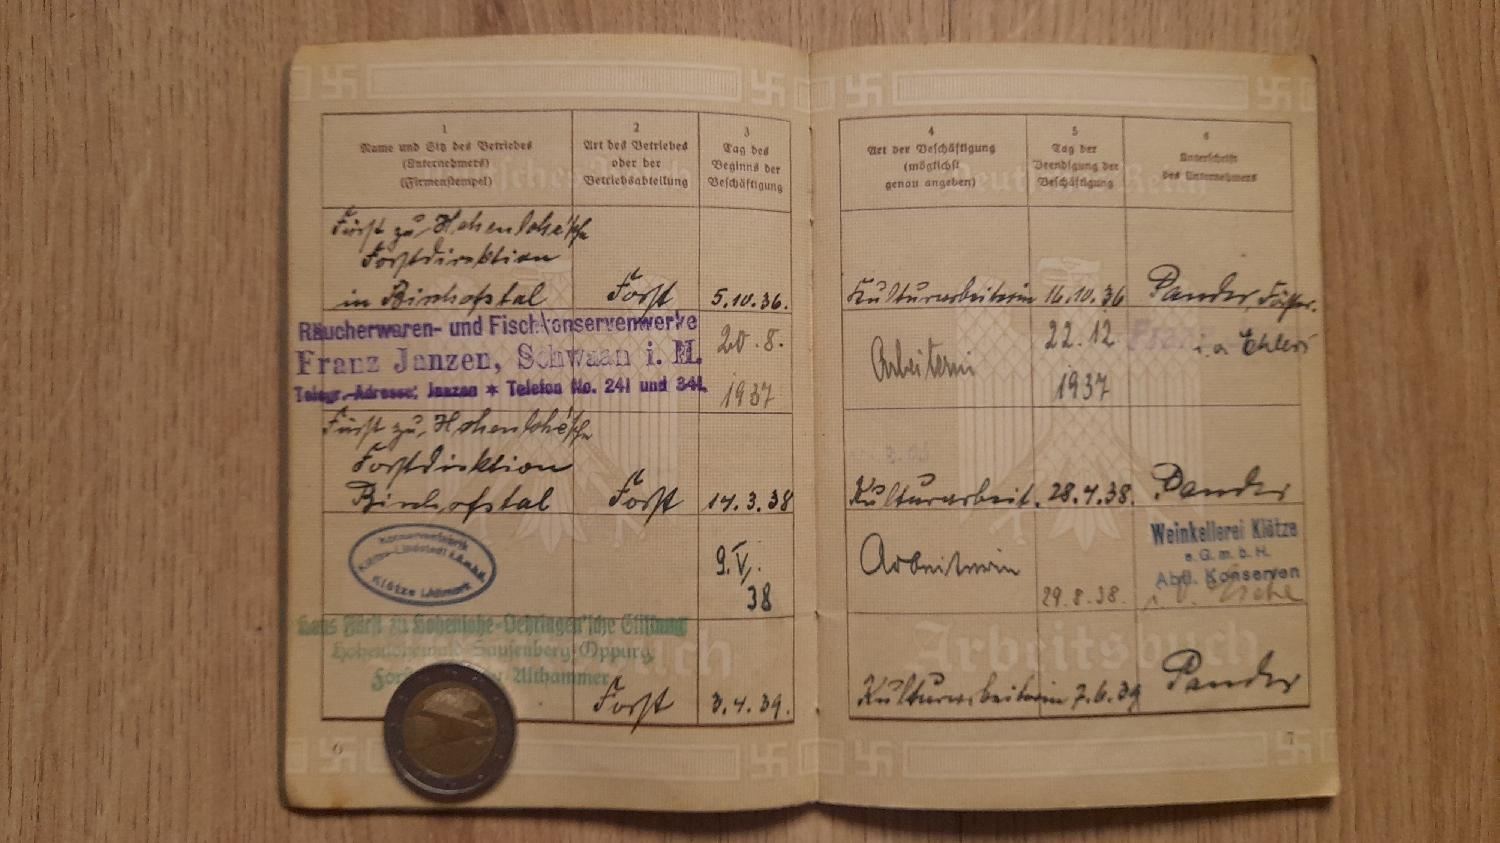 1
Name und Sitz des Betriebes
(Unternehmers)
(Firmenstempel)
2
Art des Betriebes
oder der
Betriebsabteilung
3
Tag des
Beginns der
Beschäftigung
Fürst zu Hohenlohe'sche
Forstdirektion
in Bischofstal
Forst
5.10.36.
Räucherwaren- und Fischkonservenwerke
Franz Janzen, Schwaan i. M.
Telegr.-Adresse: Janzen * Telefon No. 241 und 341.
20.8.
1937
Fürst zu Hohenlohe'sche
Forstdirektion
Bischofstal
Forst
14.3.38
Konservenfabrik
Klötze (Altmark)
9.V.
38
Hans Fürst zu Hohenlohe-Oehringen'sche Stiftung
Hohenlohewald Sausenberg-Oppurg
Althammer
Forst
3.4.39.
6
4
Art der Beschäftigung
(möglichst
genau angeben)
5
Tag der
Beendigung der
Beschäftigung
6
Unterschrift
des Unternehmers
Kulturarbeiterin
16.10.36
Pander, Förster.
Arbeiterin
22.12
1937
Franz
i.a. Ehlers
Kulturarbeit.
28.4.38.
Pander
Arbeiterin
29.8.38.
Weinkellerei Klötze
e. G. m. b. H.
Abtl. Konserven
Kulturarbeiterin
7.6.39
Pander
7
Deutsches Reich
Arbeitsbuch